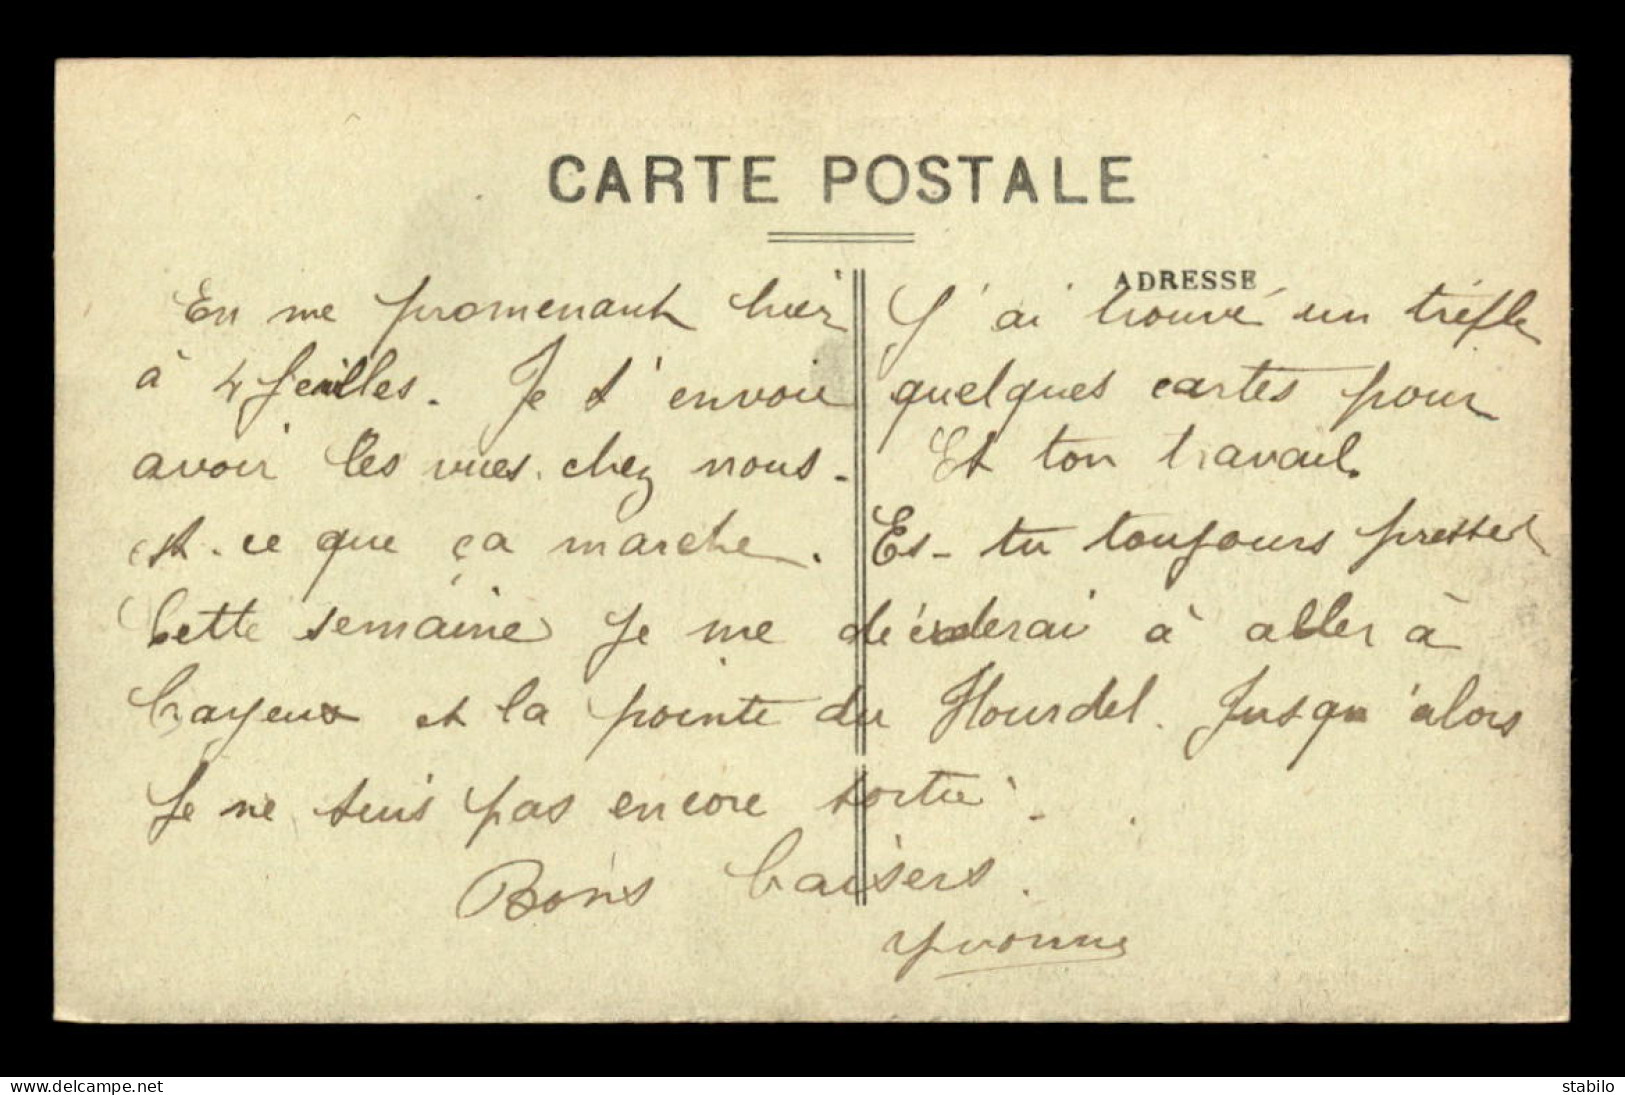 CARTE POSTALE
ADRESSE
En me promenant hier J'ai trouvé un trèfle
à 4 feuilles. Je t'envoie quelques cartes pour
avoir les vues chez nous. Et ton travail
est-ce que ça marche. Es-tu toujours pressée
Cette semaine Je me déciderai à aller à
Cayeux et la pointe du Hourdel. Jusqu'alors
Je ne suis pas encore sortie.
Bons baisers.
Yvonne
www.delcampe.net
stabilo